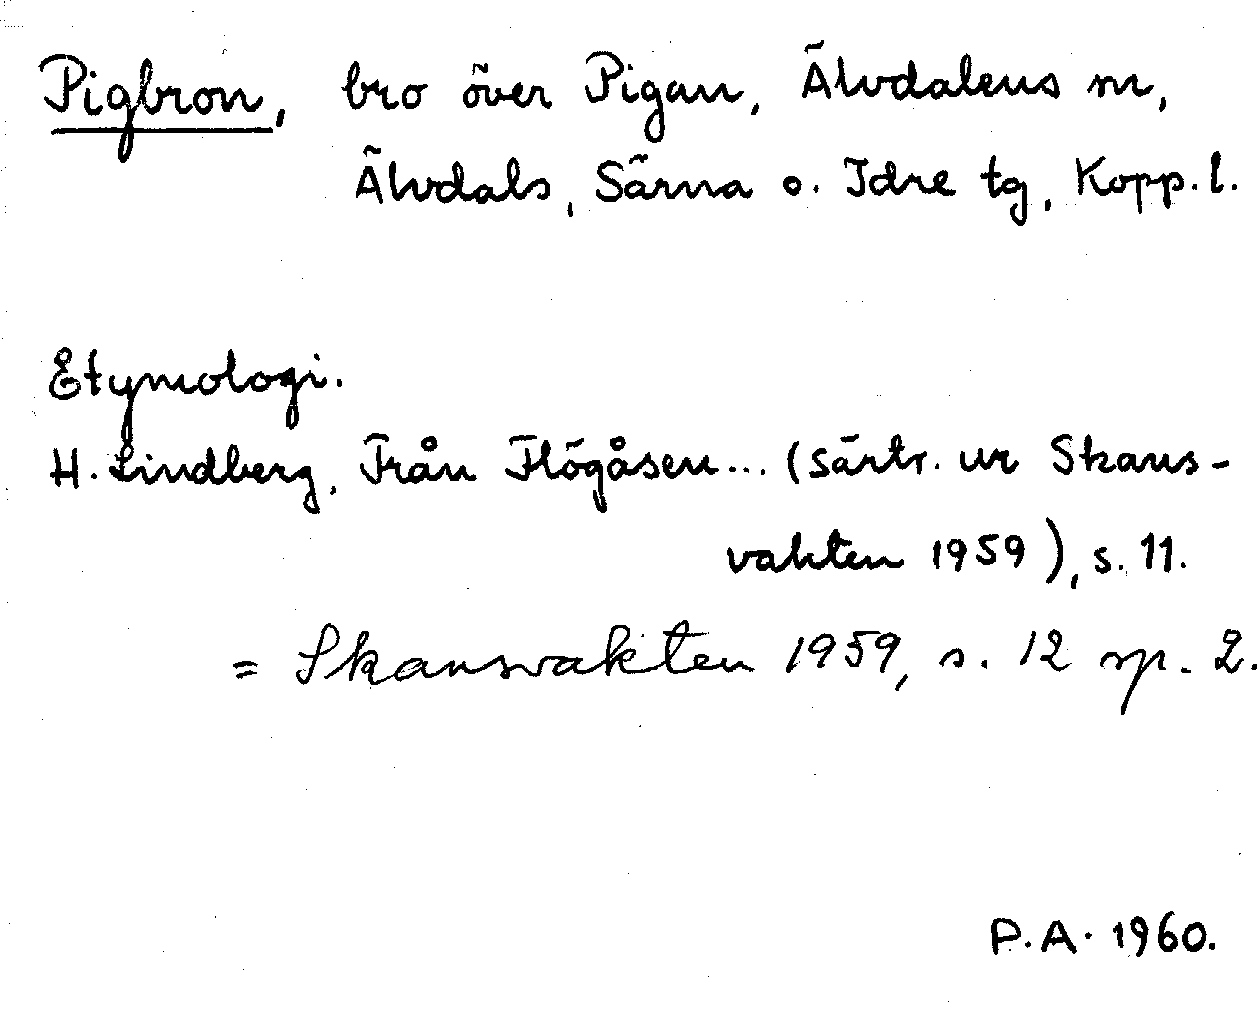 Pigbron, bro över Pigan, Älvdalens m,
Älvdals, Särna o. Idre tg, Kopp. l.
Etymologi.
H. Lindberg, Från Flögåsen... (särtr. ur Skans-
vakten 1959), s. 11.
= Skansvakten 1959, s. 12 sp. 2.
P.A. 1960.